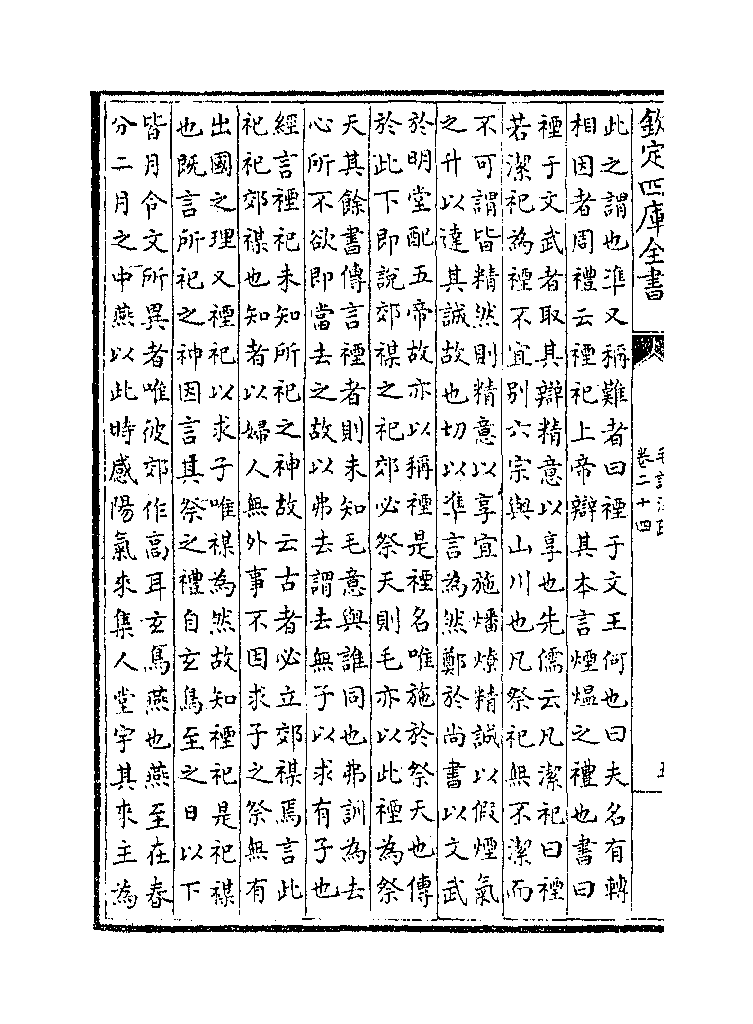 欽定四庫全書
卷二十四
此之謂也凖又稱難者曰禋于文王何也曰夫名有轉
相因者周禮云禋祀上帝辯其本言煙熅之禮也書曰
禋于文武者取其辯精意以享也先儒云凡潔祀曰禋
若潔祀為禋不宜别六宗與山川也凡祭祀無不潔而
不可謂皆精然則精意以享宜施燔燎精誠以假煙氣
之升以達其誠故也切以準言為然鄭於尚書以文武
於明堂配五帝故亦以稱禋是禋名唯施於祭天也傳
於此下即說郊禖之祀郊必祭天則毛亦以此禋為祭
天其餘書傳言禋者則未知毛意與誰同也弗訓為去
心所不欲即當去之故以弗去謂去無子以求有子也
經言禋祀未知所祀之神故云古者必立郊禖焉言此
祀祀郊禖也知者以婦人無外事不因求子之祭無有
出國之理又禋祀以求子唯禖為然故知禋祀是祀禖
也既言所祀之神因言其祭之禮自玄鳥至之日以下
皆月令文所異者唯彼郊作高耳玄鳥燕也燕至在春
分二月之中燕以此時感陽氣來集人堂宇其來主為